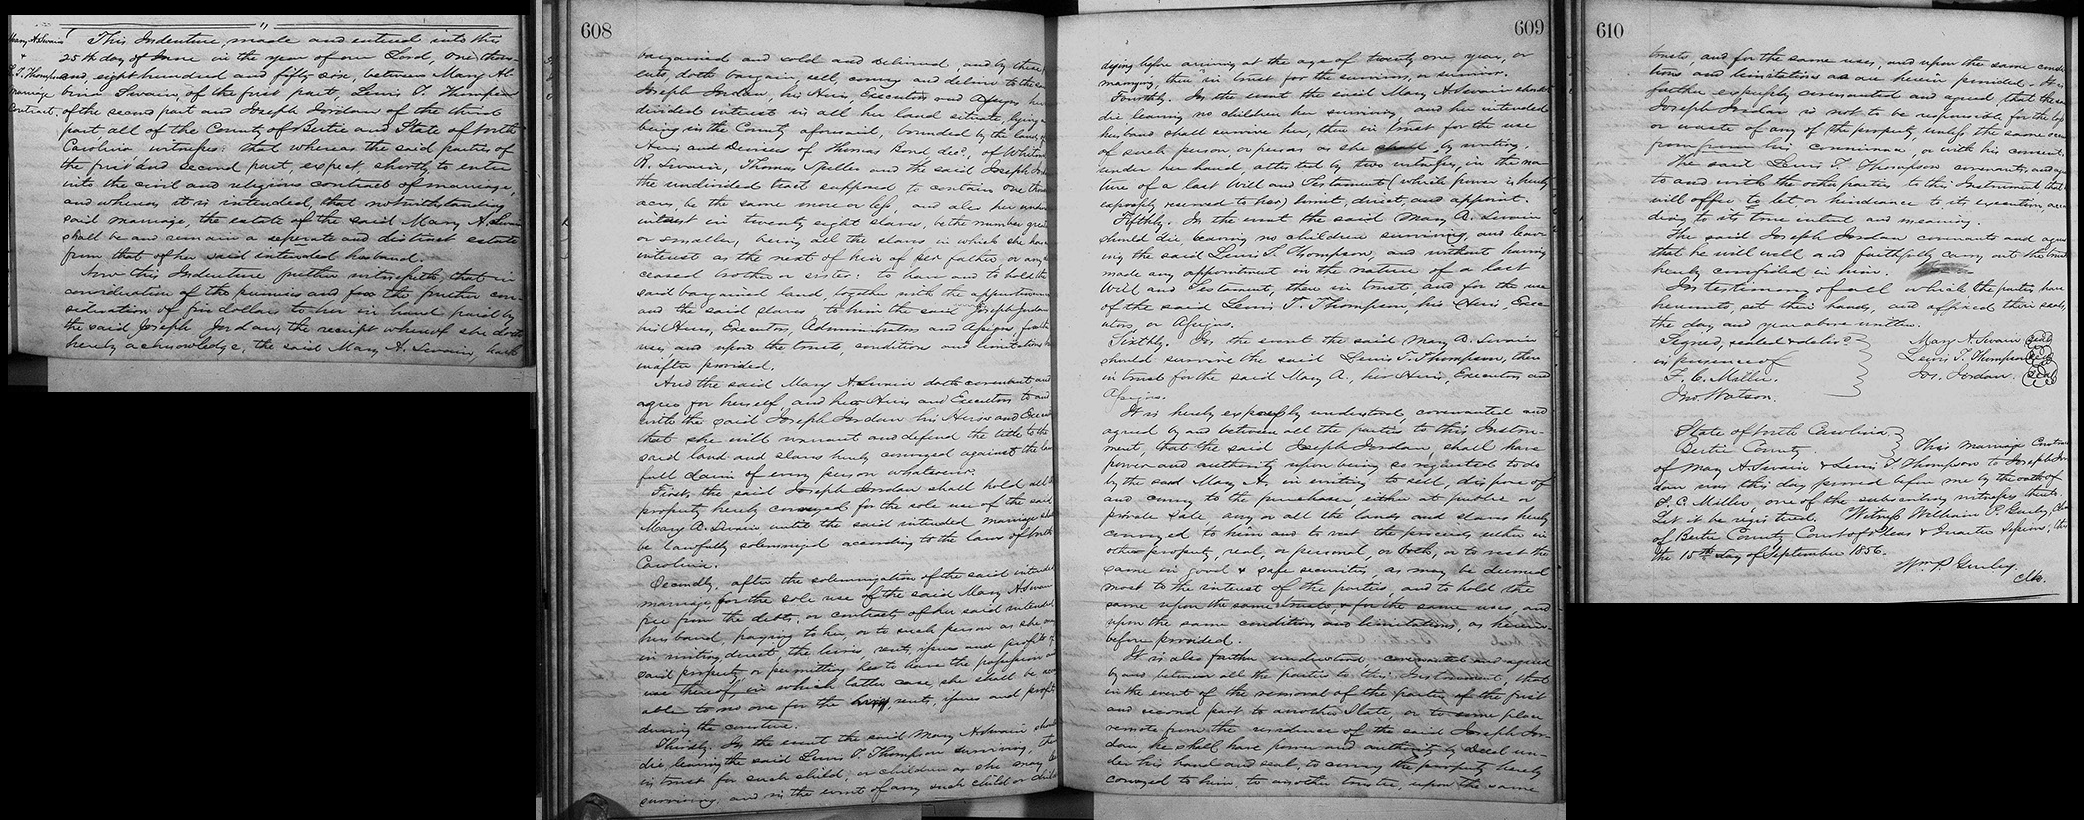 Mary A Swain
&
L. T. Thompson
Marriage
Contract.
This Indenture, made and entered into this
25th day of June in the year of our Lord, one thous-
and, eight hundred and fifty six, between Mary Al
bina Swain, of the first part, Lewis T. Thompson
of the second part and Joseph Jordan of the third
part, all of the County of Bertie and State of North
Carolina witness: that whereas the said parties of
the first and second part, expect, shortly to enter
into the civil and religious contract of marriage,
and whereas it is intended, that notwithstanding
said marriage, the estate of the said Mary A. Swain
shall be and remain a seperate and distinct estate
from that of her said intended husband.
Now this Indenture further witnesseth, that in
consideration of the premises and for the further con-
sideration of five dollars to her in hand paid by
the said Joseph Jordan, the receipt whereof she doth
hereby acknowledge, the said Mary A. Swain, hath
608
bargained and sold and delivered, and by these
ents, doth bargain, sell, convey and deliver to the
Joseph Jordan, his Heirs, Executors and Assigns, her
divided interest in all her land situate, lying
being in the County aforesaid, bounded by the lands of
Heirs and Devisees of Thomas Bond decd., of Whitmel
R. Swain, Thomas Speller and the said Joseph Jordan
the undivided tract supposed to contain one thous
acres, be the same more or less, and also her undiv
interest in twenty eight slaves, be the number greater
or smaller, being all the slaves in which she has
interest as the next of kin of her father or any
ceased brother or sister: to have and to hold the
said bargained land, together with the appurtenances
and the said slaves to him the said Joseph Jordan
his Heirs, Executors, Administrators and Assigns for the
uses, and upon the trusts, condition and limitations
inafter provided.
And the said Mary A Swain doth covenant and
agree for herself and her Heirs and Executors to and
with the said Joseph Jordan his Heirs and Executors
that she will warrant and defend the title to the
said land and slaves hereby conveyed against the law
full claim of every person whatsoever.
First, the said Joseph Jordan shall hold all the
property hereby conveyed for the sole use of the said
Mary A. Swain until the said intended marriage shall
be lawfully solemnized according to the laws of North
Carolina.
Secondly, after the solemnization of the said intended
marriage, for the sole use of the said Mary A Swain
free from the debts, or contracts of her said intended
husband, paying to her, or to such person as she may
in writing direct, the hires, rents, issues and profits of
said property, or permitting her to have the possession and
use thereof, in which latter case, she shall be
able to no one for the hires, rents, issues and profits
during the coverture.
Thirdly. In the event the said Mary A Swain should
die, leaving the said Lewis T. Thompson surviving, then
in trust, for such child, or children as she may
surviving, and in the event of any such child or children
609
dying before arriving at the age of twenty one year, or
marrying, then in trust for the survivors, or survivor.
Fourthly. In the event the said Mary A Swain should
die leaving no children her surviving, and her intended
husband shall survive her, then in trust for the use
of such person, or persons as she shall by writing,
under her hand, attested by two witnesses, in the na-
ture of a last Will and Testament (which power is hereby
expressly reserved to her) limit, direct, and appoint.
Fifthly. In the event the said Mary A. Swain
should die, leaving no children surviving, and leav-
ing the said Lewis T. Thompson, and without having
made any appointment in the nature of a last
Will and testament, then in trust, and for the use
of the said Lewis T. Thompson, his Heirs, Exec
utors, or Assigns.
Sixthly. In the event the said Mary A. Swain
should survive the said Lewis T. Thompson, then
in trust for the said Mary A., her Heirs, Executors and
Assigns.
It is hereby expressly understood, covenanted and
agreed by and between all the parties to this Instru-
ment, that the said Joseph Jordan, shall have
power and authority upon being so requested to do
by the said Mary A. in writing to sell, dispose of
and convey to the purchaser, either at public or
private sale any or all the lands and slaves hereby
conveyed to him and to vest the proceeds either in
other property, real, or personal, or both, or to vest the
same in good & safe securities as may be deemed
most to the interest of the parties, and to hold the
same upon the same trusts, & for the same uses, and
upon the same conditions and limitations, as herein
before provided.
It is also further understood, covenanted and agreed
by and between all the parties to this Instrument, that
in the event of the removal of the parties of the first
and second part to another State, or to some place
remote from the residence of the said Joseph Jor-
dan, he shall have power and authority by Deed un-
der his hand and seal, to convey the property hereby
conveyed to him, to another trustee, upon the same
610
trusts and for the same uses, and upon the same condi
tions and limitations as are herein provided. It is
further expressly covenanted and agreed, that the said
Joseph Jordan is not to be responsible for the loss
or waste of any of the property, unless the same occur
from his connivance, or with his consent.
The said Lewis T. Thompson covenants, and agrees
to and with the other parties to this Instrument that he
will offer no let or hindrance to its execution, accor
ding to its true intent and meaning.
The said Joseph Jordan covenants and agrees
that he will well and faithfully carry out the trust
hereby confided in him.
In testimony of all which the parties have
hereunto, set their hands, and affixed their seals,
the day and year above written.
Signed, sealed & delivd. Mary A. Swain seal
in presence of Lewis T. Thompson seal
F. C. Miller. Jos. Jordan. seal
Jno. Watson.
State of North Carolina
Bertie County. This marriage Contract
of Mary A. Swain & Lewis T Thompson to Joseph Jor
dan was this day proved before me by the oath of
F. C. Miller, one of the subscribing witness thereto.
Let it be registered. Witness William P. Gurley, Clerk
of Bertie County Court of Pleas & Quarter Sessions, this
the 15th day of September 1856.
Wm. P Gurley.
Clk.